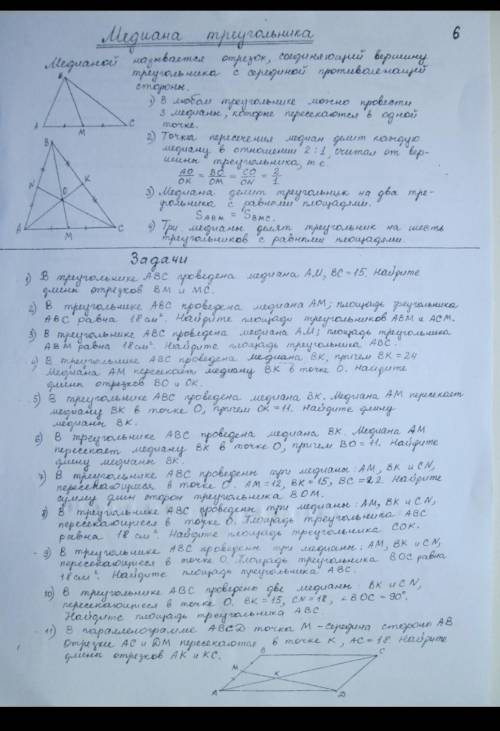 Медиана треугольника
6
Медианой называется отрезок, соединяющий вершину
треугольника с серединой противолежащей
стороны.
1) В любом треугольнике можно провести
3 медианы, которые пересекаются в одной
точке.
2) Точка пересечения медиан делит каждую
медиану в отношении 2:1, считая от вер-
шины треугольника, т.е.
AO/OK = BO/OM = CO/ON = 2/1
3) Медиана делит треугольник на два тре-
угольника с равными площадями.
S ABM = S BMC.
4) Три медианы делят треугольник на шесть
треугольников с равными площадями.
B
A
M
C
B
N
K
O
A
M
C
Задачи
1) В треугольнике ABC проведена медиана AM, BC=15. Найдите
длины отрезков BM и MC.
2) В треугольнике ABC проведена медиана AM; площадь треугольника
ABC равна 18 см². Найдите площади треугольников ABM и ACM.
3) В треугольнике ABC проведена медиана AM; площадь треугольника
ABM равна 18 см². Найдите площадь треугольника ABC.
4) В треугольнике ABC проведена медиана BK, причем BK=24
Медиана AM пересекает медиану BK в точке O. Найдите
длины отрезков BO и OK.
5) В треугольнике ABC проведена медиана BK. Медиана AM пересекает
медиану BK в точке O, причем OK=11. Найдите длину
медианы BK.
6) В треугольнике ABC проведена медиана BK. Медиана AM
пересекает медиану BK в точке O, причем BO=11. Найдите
длину медианы BK.
7) В треугольнике ABC проведены три медианы: AM, BK и CN,
пересекающиеся в точке O. AM=12, BK=15, BC=22. Найдите
сумму длин сторон треугольника BOM.
8) В треугольнике ABC проведены три медианы: AM, BK и CN,
пересекающиеся в точке O. Площадь треугольника ABC
равна 18 см². Найдите площадь треугольника COK.
9) В треугольнике ABC проведены три медианы: AM, BK и CN,
пересекающиеся в точке O. Площадь треугольника BOC равна
18 см². Найдите площадь треугольника ABC.
10) В треугольнике ABC проведено две медианы: BK и CN,
пересекающиеся в точке O. BK=15, CN=18, ∠BOC=90°.
Найдите площадь треугольника ABC.
11) В параллелограмме ABCD точка M - середина стороны AB
Отрезки AC и DM пересекаются в точке K, AC=18. Найдите
длины отрезков AK и KC.
B
C
M
K
A
D